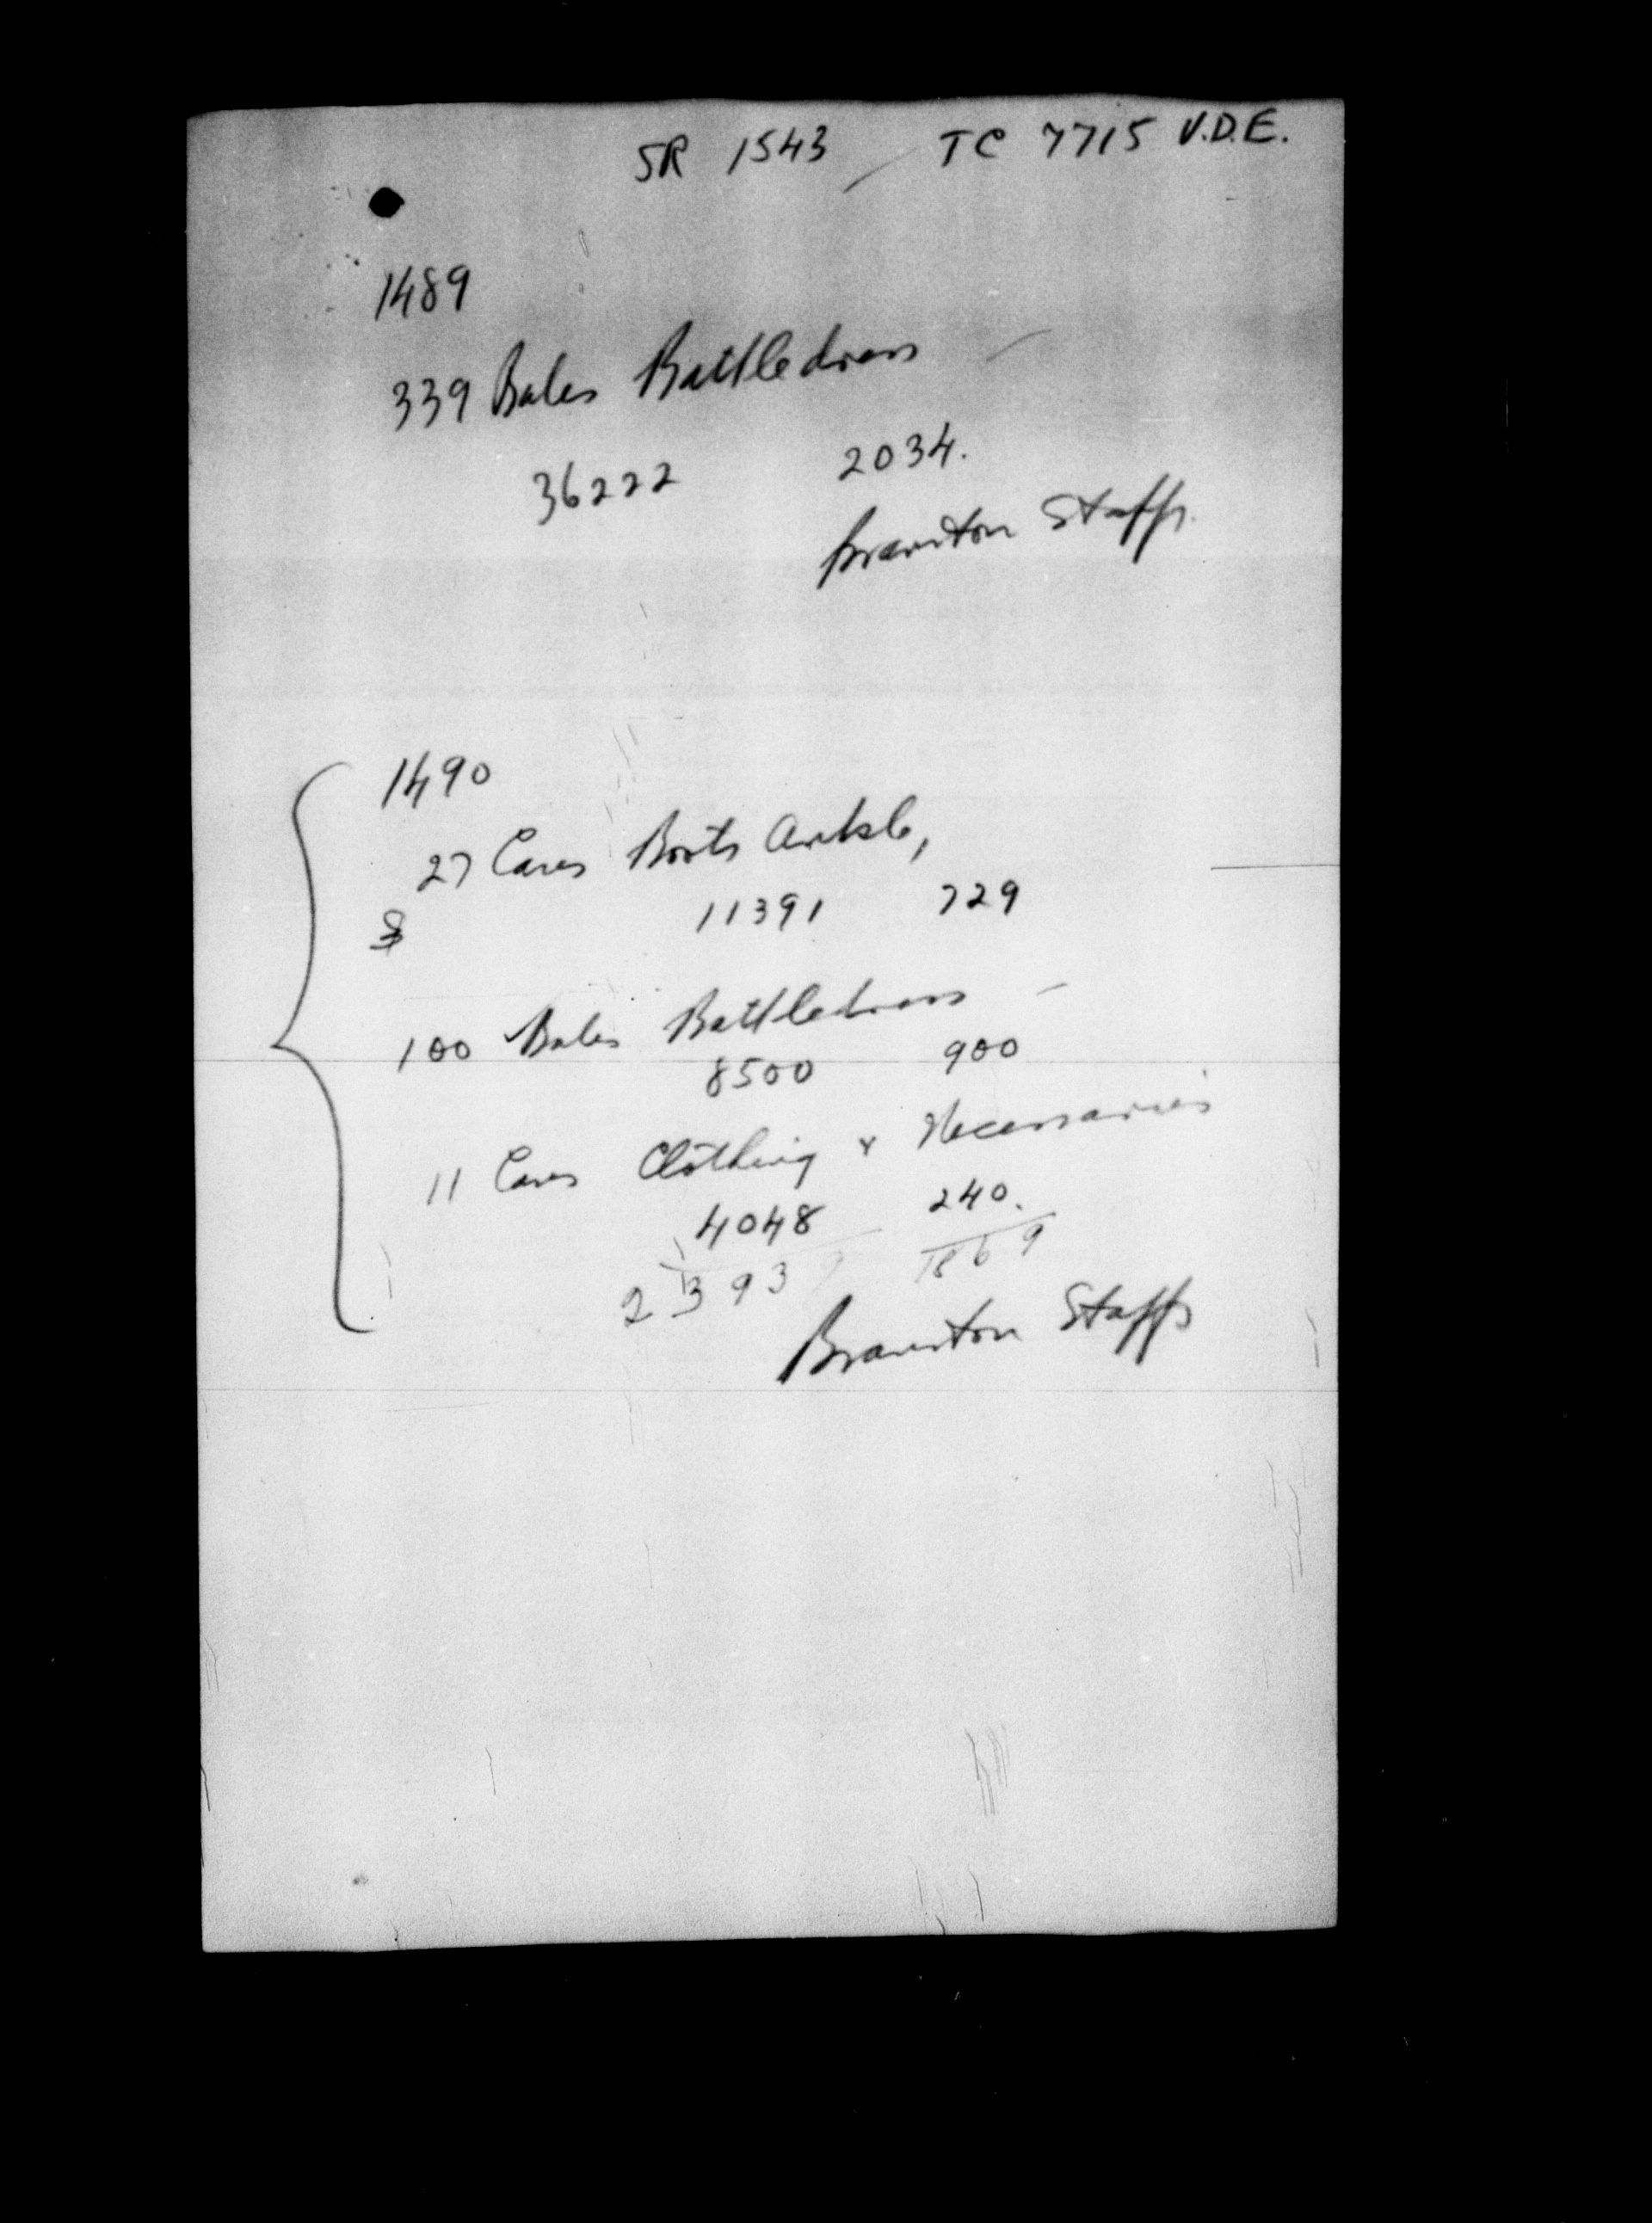 SR 1543 / TC 7715 V.D.E.
1489
339 Bales Battledress —
36222 2034.
Branston Staffs.
1490
27 Cases Boots Ankle,
11391 729
100 Bales Battledress —
8500 900
11 Cases Clothing & Necessaries
4048 240.
23939 1869
Branston Staffs